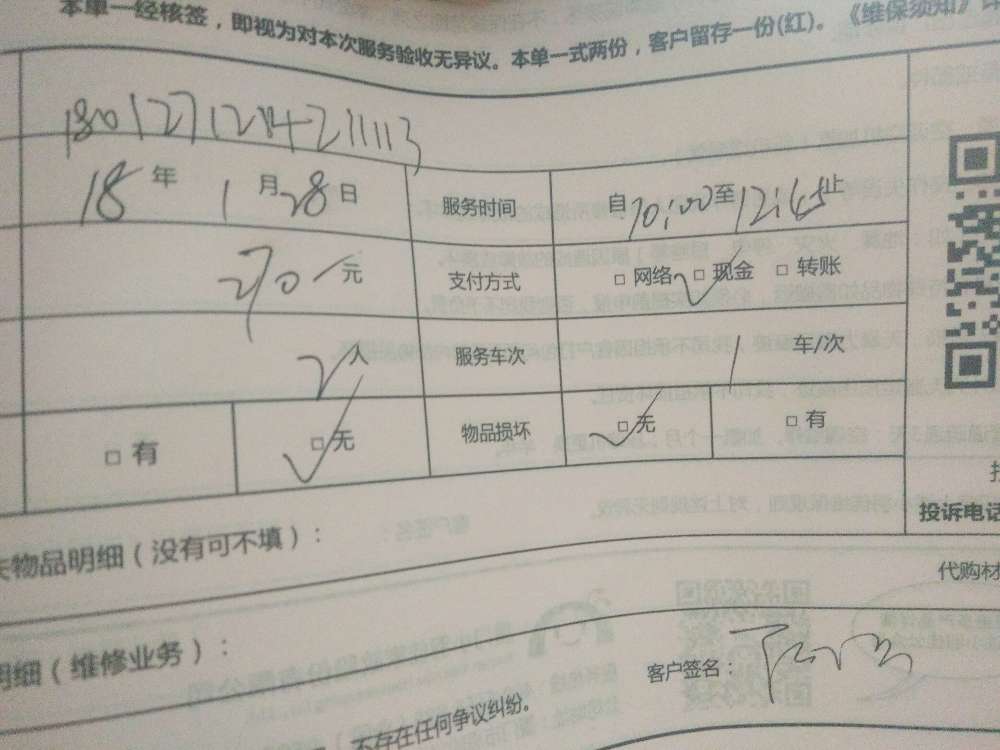 本单一经核签，即视为对本次服务验收无异议。本单一式两份，客户留存一份(红)。《维保须知》详
18012712142111113
18 年 1 月 28 日 服务时间 自 10:00 至 12:45 止
270 元 支付方式 □ 网络 □ 现金 □ 转账
2 人 服务车次 1 车/次
□ 有 □ 无 物品损坏 □ 无 □ 有
投诉电话
物品明细（没有可不填）：
代购材
明细（维修业务）：
客户签名：
不存在任何争议纠纷。